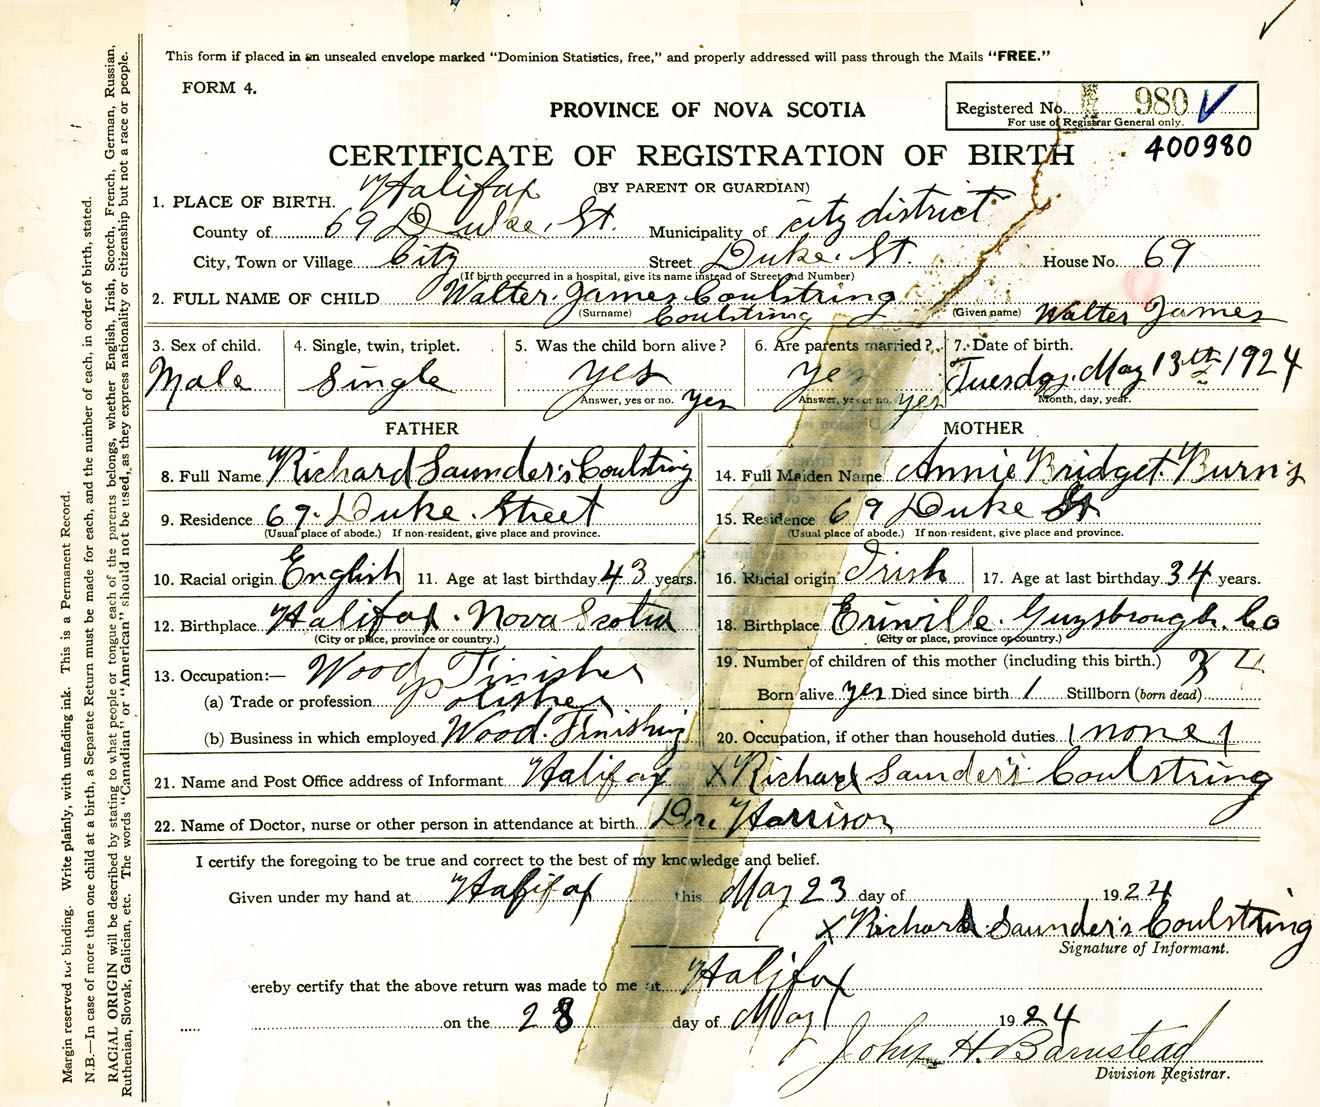 This form if placed in an unsealed envelope marked "Dominion Statistics, free," and properly addressed will pass through the Mails "FREE."
FORM 4.
PROVINCE OF NOVA SCOTIA
Registered No. 980
For use of Registrar General only.
400980
CERTIFICATE OF REGISTRATION OF BIRTH
(BY PARENT OR GUARDIAN)
1. PLACE OF BIRTH. Halifax
County of 69 Duke. St. Municipality of city district
City, Town or Village City Street Duke. St. House No. 69
(If birth occurred in a hospital, give its name instead of Street and Number)
2. FULL NAME OF CHILD Walter. James Coulstring
(Surname) Coulstring (Given name) Walter James
3. Sex of child. 4. Single, twin, triplet. 5. Was the child born alive? 6. Are parents married? 7. Date of birth.
Male Single yes yes Tuesday. May 13th 1924
Answer, yes or no. yes Answer, yes or no. yes Month, day, year.
FATHER MOTHER
8. Full Name Richard Saunder's Coulstring 14. Full Maiden Name Annie Bridget. Burn's
9. Residence 69. Duke. Street 15. Residence 69 Duke St
(Usual place of abode.) If non-resident, give place and province. (Usual place of abode.) If non-resident, give place and province.
10. Racial origin English 11. Age at last birthday 43 years. 16. Racial origin Irish 17. Age at last birthday 34 years.
12. Birthplace Halifax. Nova Scotia 18. Birthplace Erinville. Guysbrough. Co
(City or place, province or country.) (City or place, province or country.)
13. Occupation:— Wood Finisher 19. Number of children of this mother (including this birth.) 4
(a) Trade or profession Born alive yes Died since birth 1 Stillborn (born dead)
(b) Business in which employed Wood. Finishing 20. Occupation, if other than household duties. none
21. Name and Post Office address of Informant Halifax X Richard Saunder's Coulstring
22. Name of Doctor, nurse or other person in attendance at birth Dr. Harrison
I certify the foregoing to be true and correct to the best of my knowledge and belief.
Given under my hand at Halifax this May 23 day of 1924
X Richard Saunder's Coulstring
Signature of Informant.
hereby certify that the above return was made to me at Halifax
on the 28 day of May 1924
John H. Barnstead
Division Registrar.
Margin reserved for binding. Write plainly, with unfading ink. This is a Permanent Record.
N.B.—In case of more than one child at a birth, a Separate Return must be made for each, and the number of each, in order of birth, stated.
RACIAL ORIGIN will be described by stating to what people or tongue each of the parents belongs, whether English, Irish, Scotch, French, German, Russian,
Ruthenian, Slovak, Galician, etc. The words "Canadian" or "American" should not be used, as they express nationality or citizenship but not a race or people.